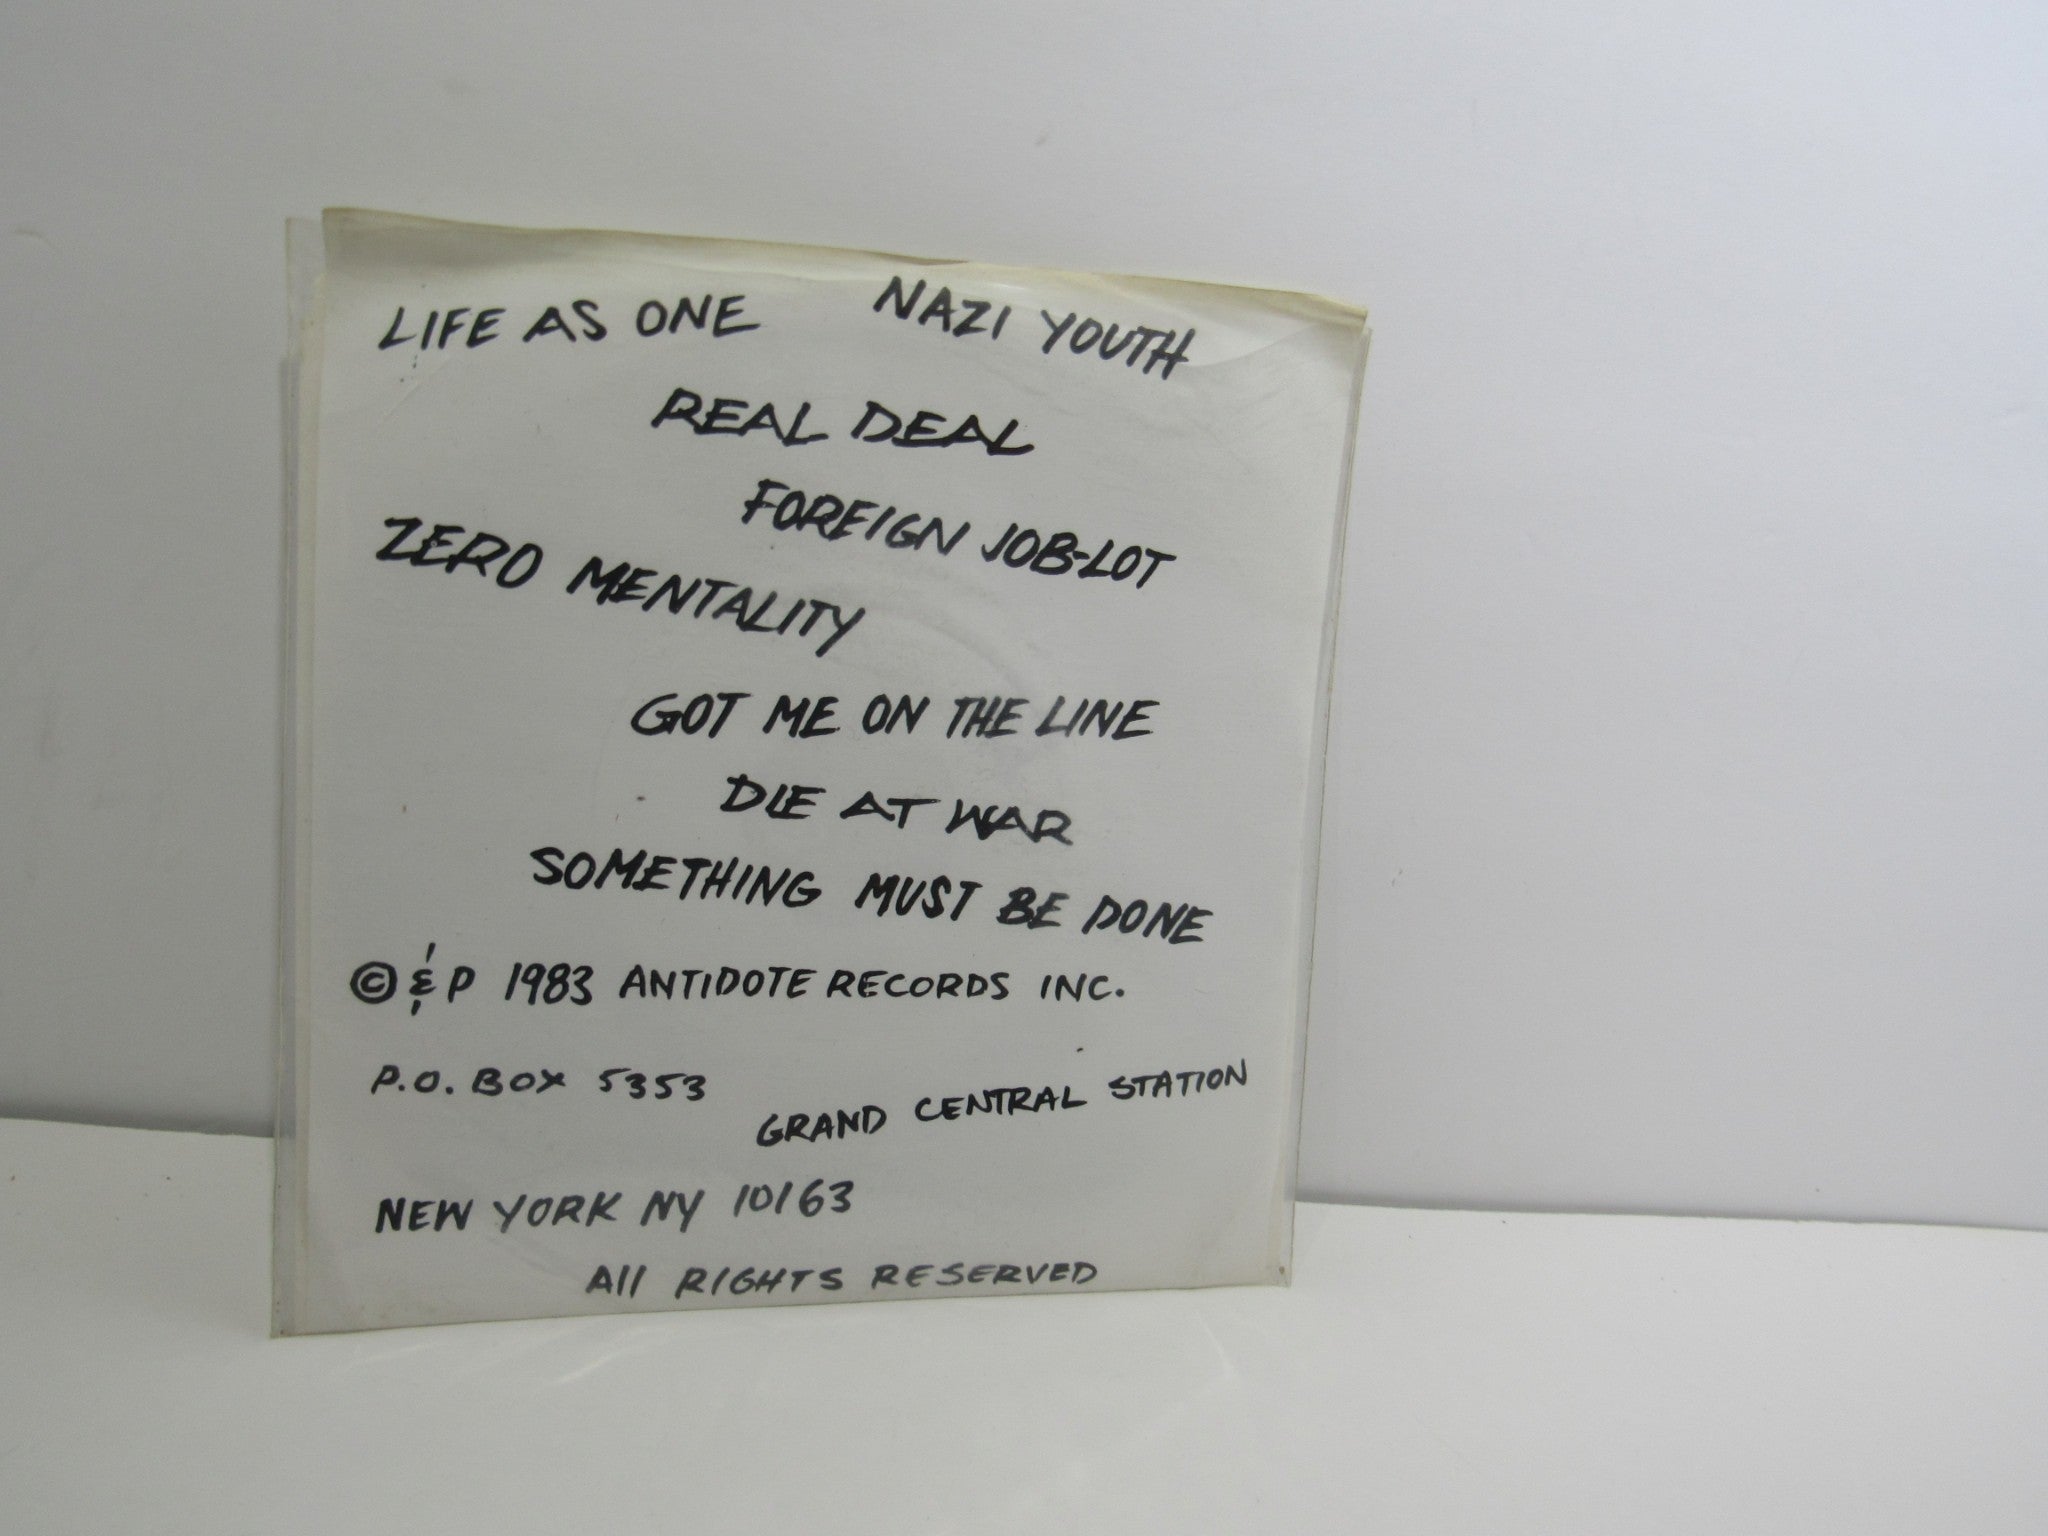 LIFE AS ONE NAZI YOUTH
REAL DEAL
FOREIGN JOB-LOT
ZERO MENTALITY
GOT ME ON THE LINE
DIE AT WAR
SOMETHING MUST BE DONE
© & P 1983 ANTIDOTE RECORDS INC.
P.O. BOX 5353
GRAND CENTRAL STATION
NEW YORK NY 10163
All RIGHTS RESERVED